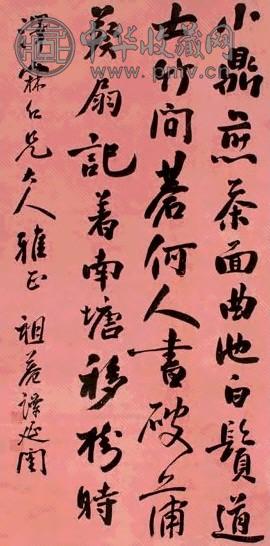 小鼎煎茶面曲池白鬚道
士竹間碁何人書破蒲
葵扇記着南塘移樹時
澤霖仁兄大人雅正 祖菴譚延闓
中华收藏网